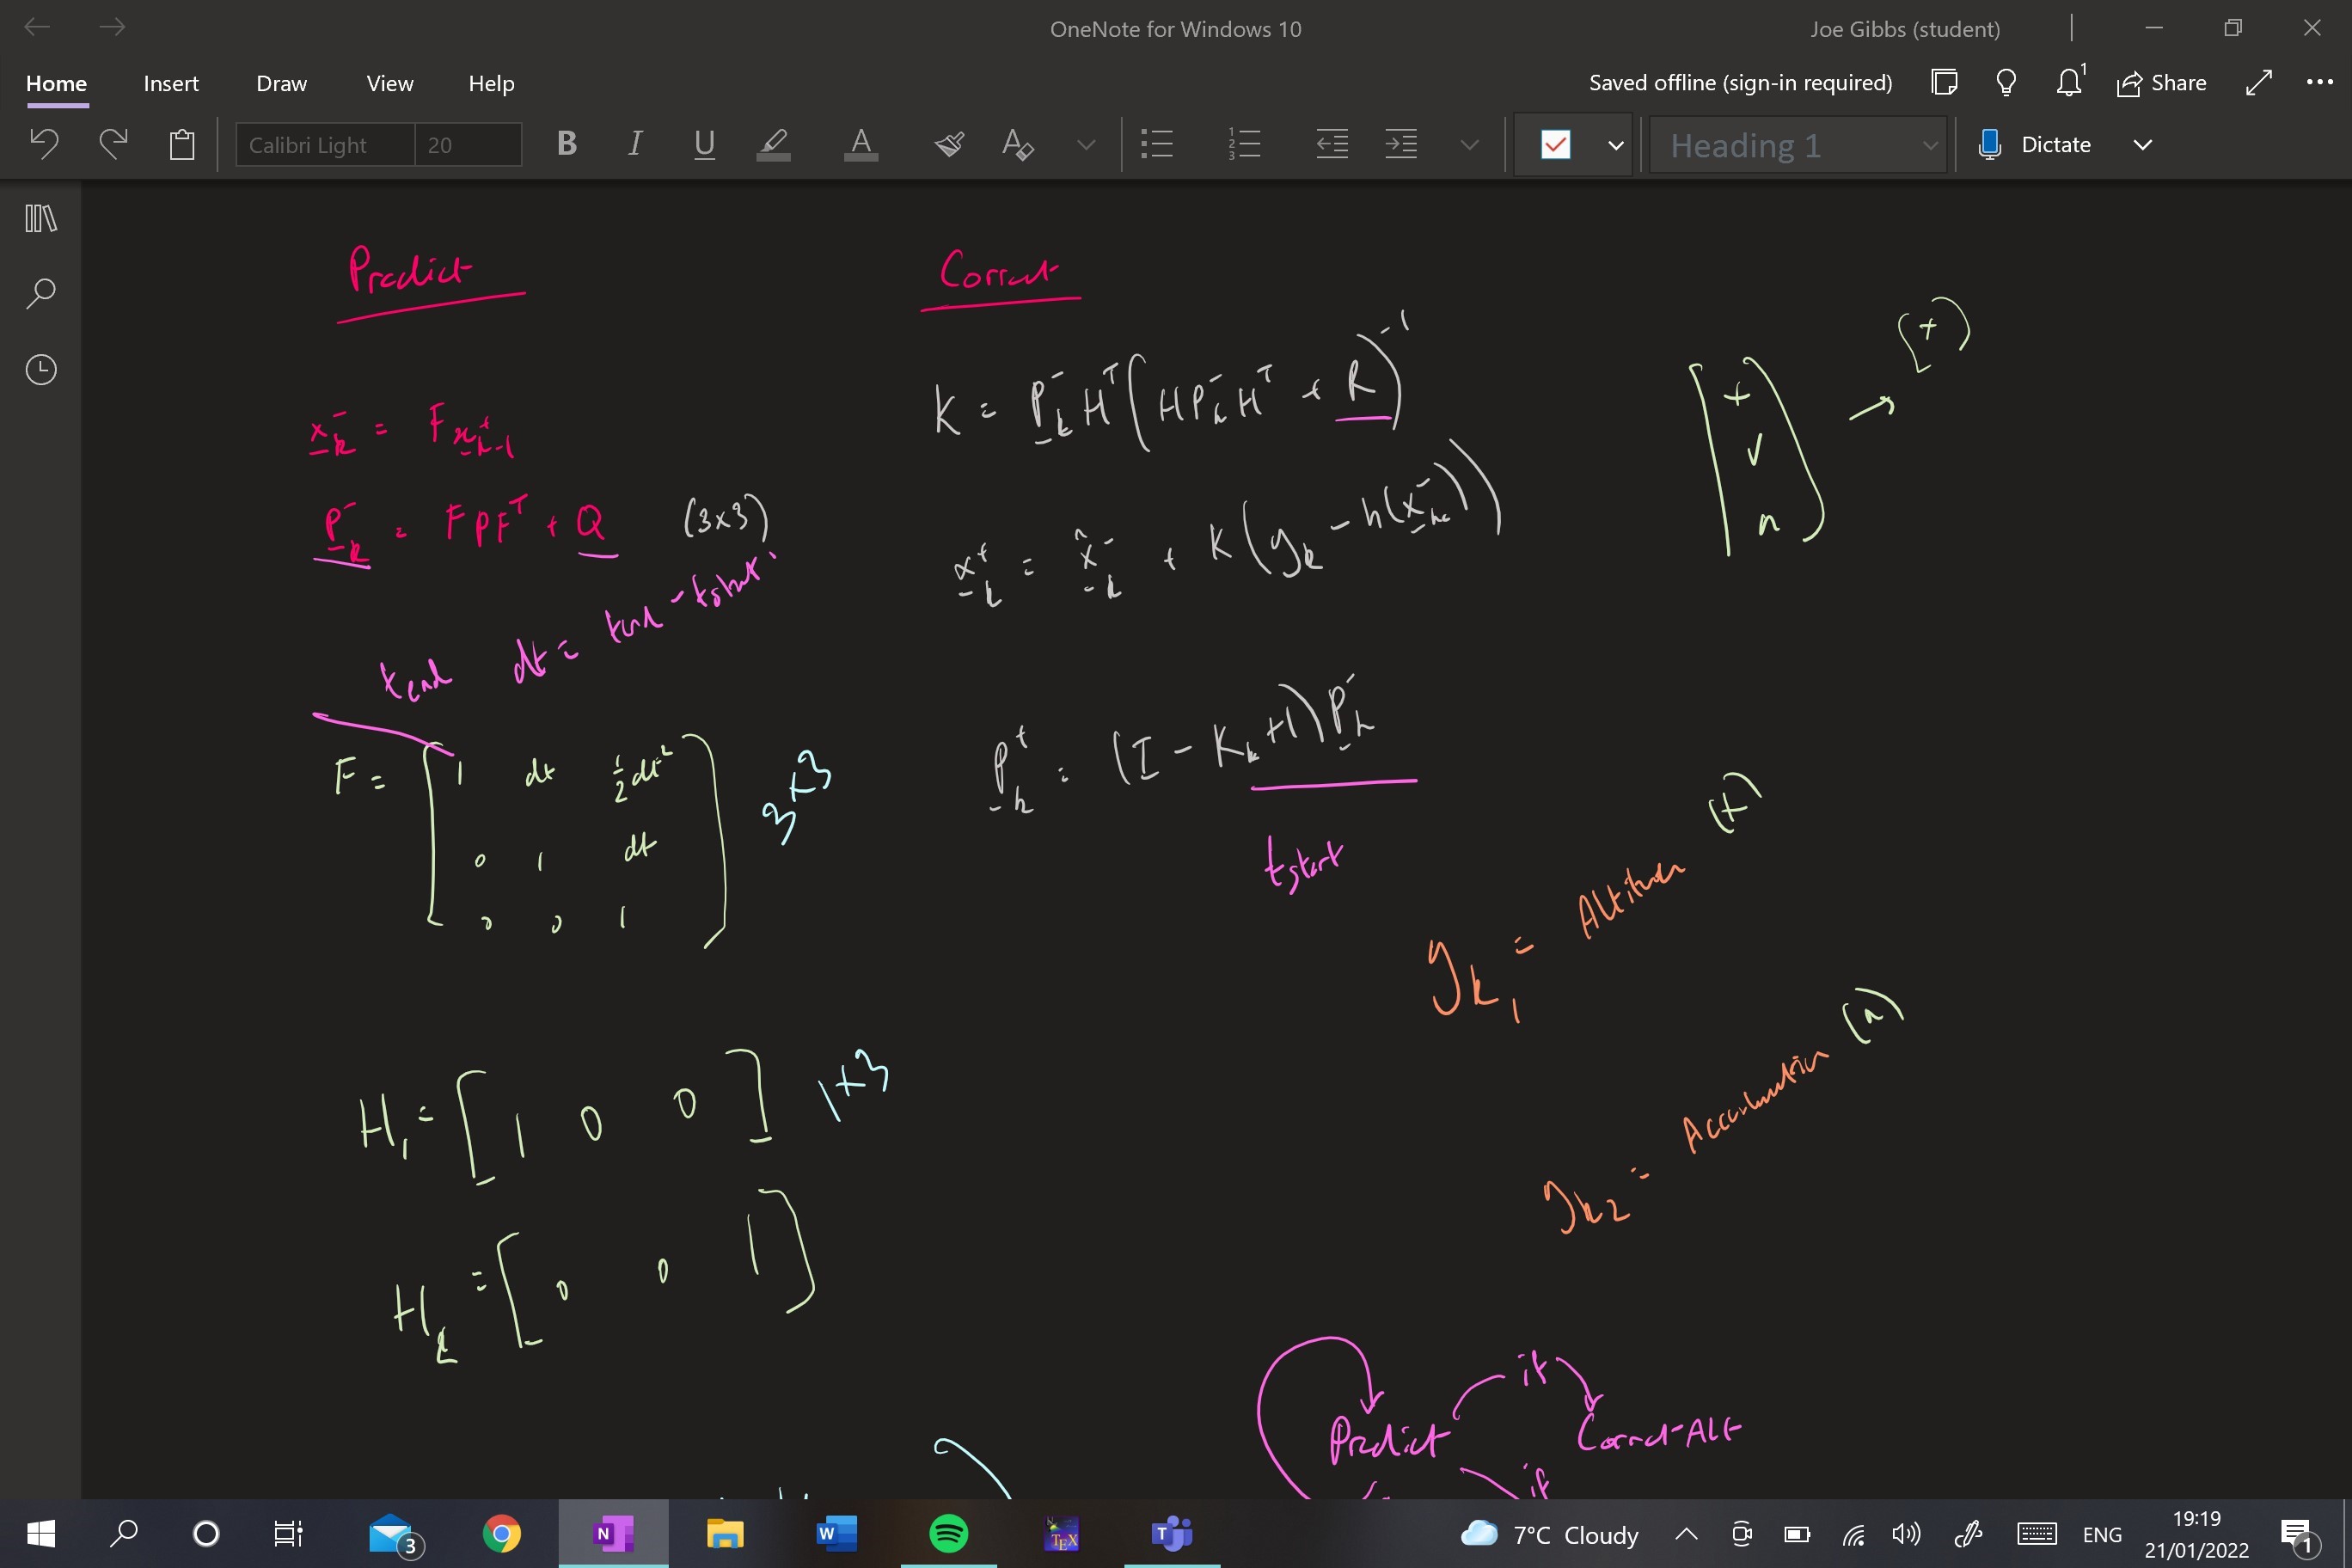 OneNote for Windows 10
Joe Gibbs (student)
Home Insert Draw View Help
Saved offline (sign-in required) 1 Share
Calibri Light 20 B I U A A Heading 1 Dictate
Predict
x̲ₖ⁻ = F x̲ₖ₋₁⁺
P̲ₖ⁻ = FPFᵀ + Q (3x3)
tend dt = tend - tstart
F = [ 1 dt ½dt²
0 1 dt
0 0 1 ] 3x3
H₁ = [ 1 0 0 ] 1x3
H₂ = [ 0 0 1 ]
Correct
K = P̲ₖ⁻Hᵀ(HPₖ⁻Hᵀ + R)⁻¹
x̲ₖ⁺ = x̲̂ₖ⁻ + K(yₖ - h(x̲ₖ⁻))
P̲ₖ⁺ = (I - KₖH)P̲ₖ⁻
tstart
[ x
v
a ] → [x]
yₖ₁ = Altitude (x)
yₖ₂ = Acceleration (a)
Predict if Correct-Alt
if
3 N W TEX T
7°C Cloudy ENG 19:19
21/01/2022 1